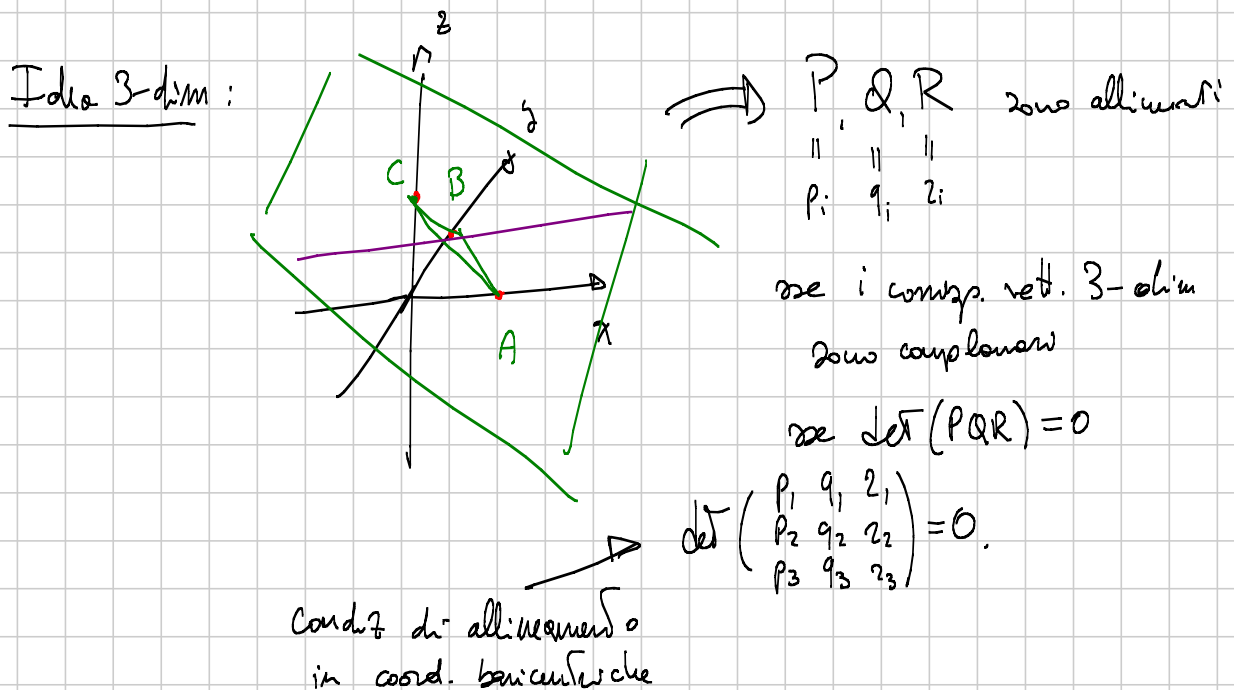 Idea 3-dim :
z
y
C
B
A
x
⇒ P, Q, R sono allineati
" " "
pᵢ qᵢ rᵢ
sse i corrisp. vett. 3-dim
sono complanari
sse det (PQR) = 0
det ( p₁ q₁ r₁
p₂ q₂ r₂
p₃ q₃ r₃ ) = 0.
Condiz di allineamento
in coord. baricentriche